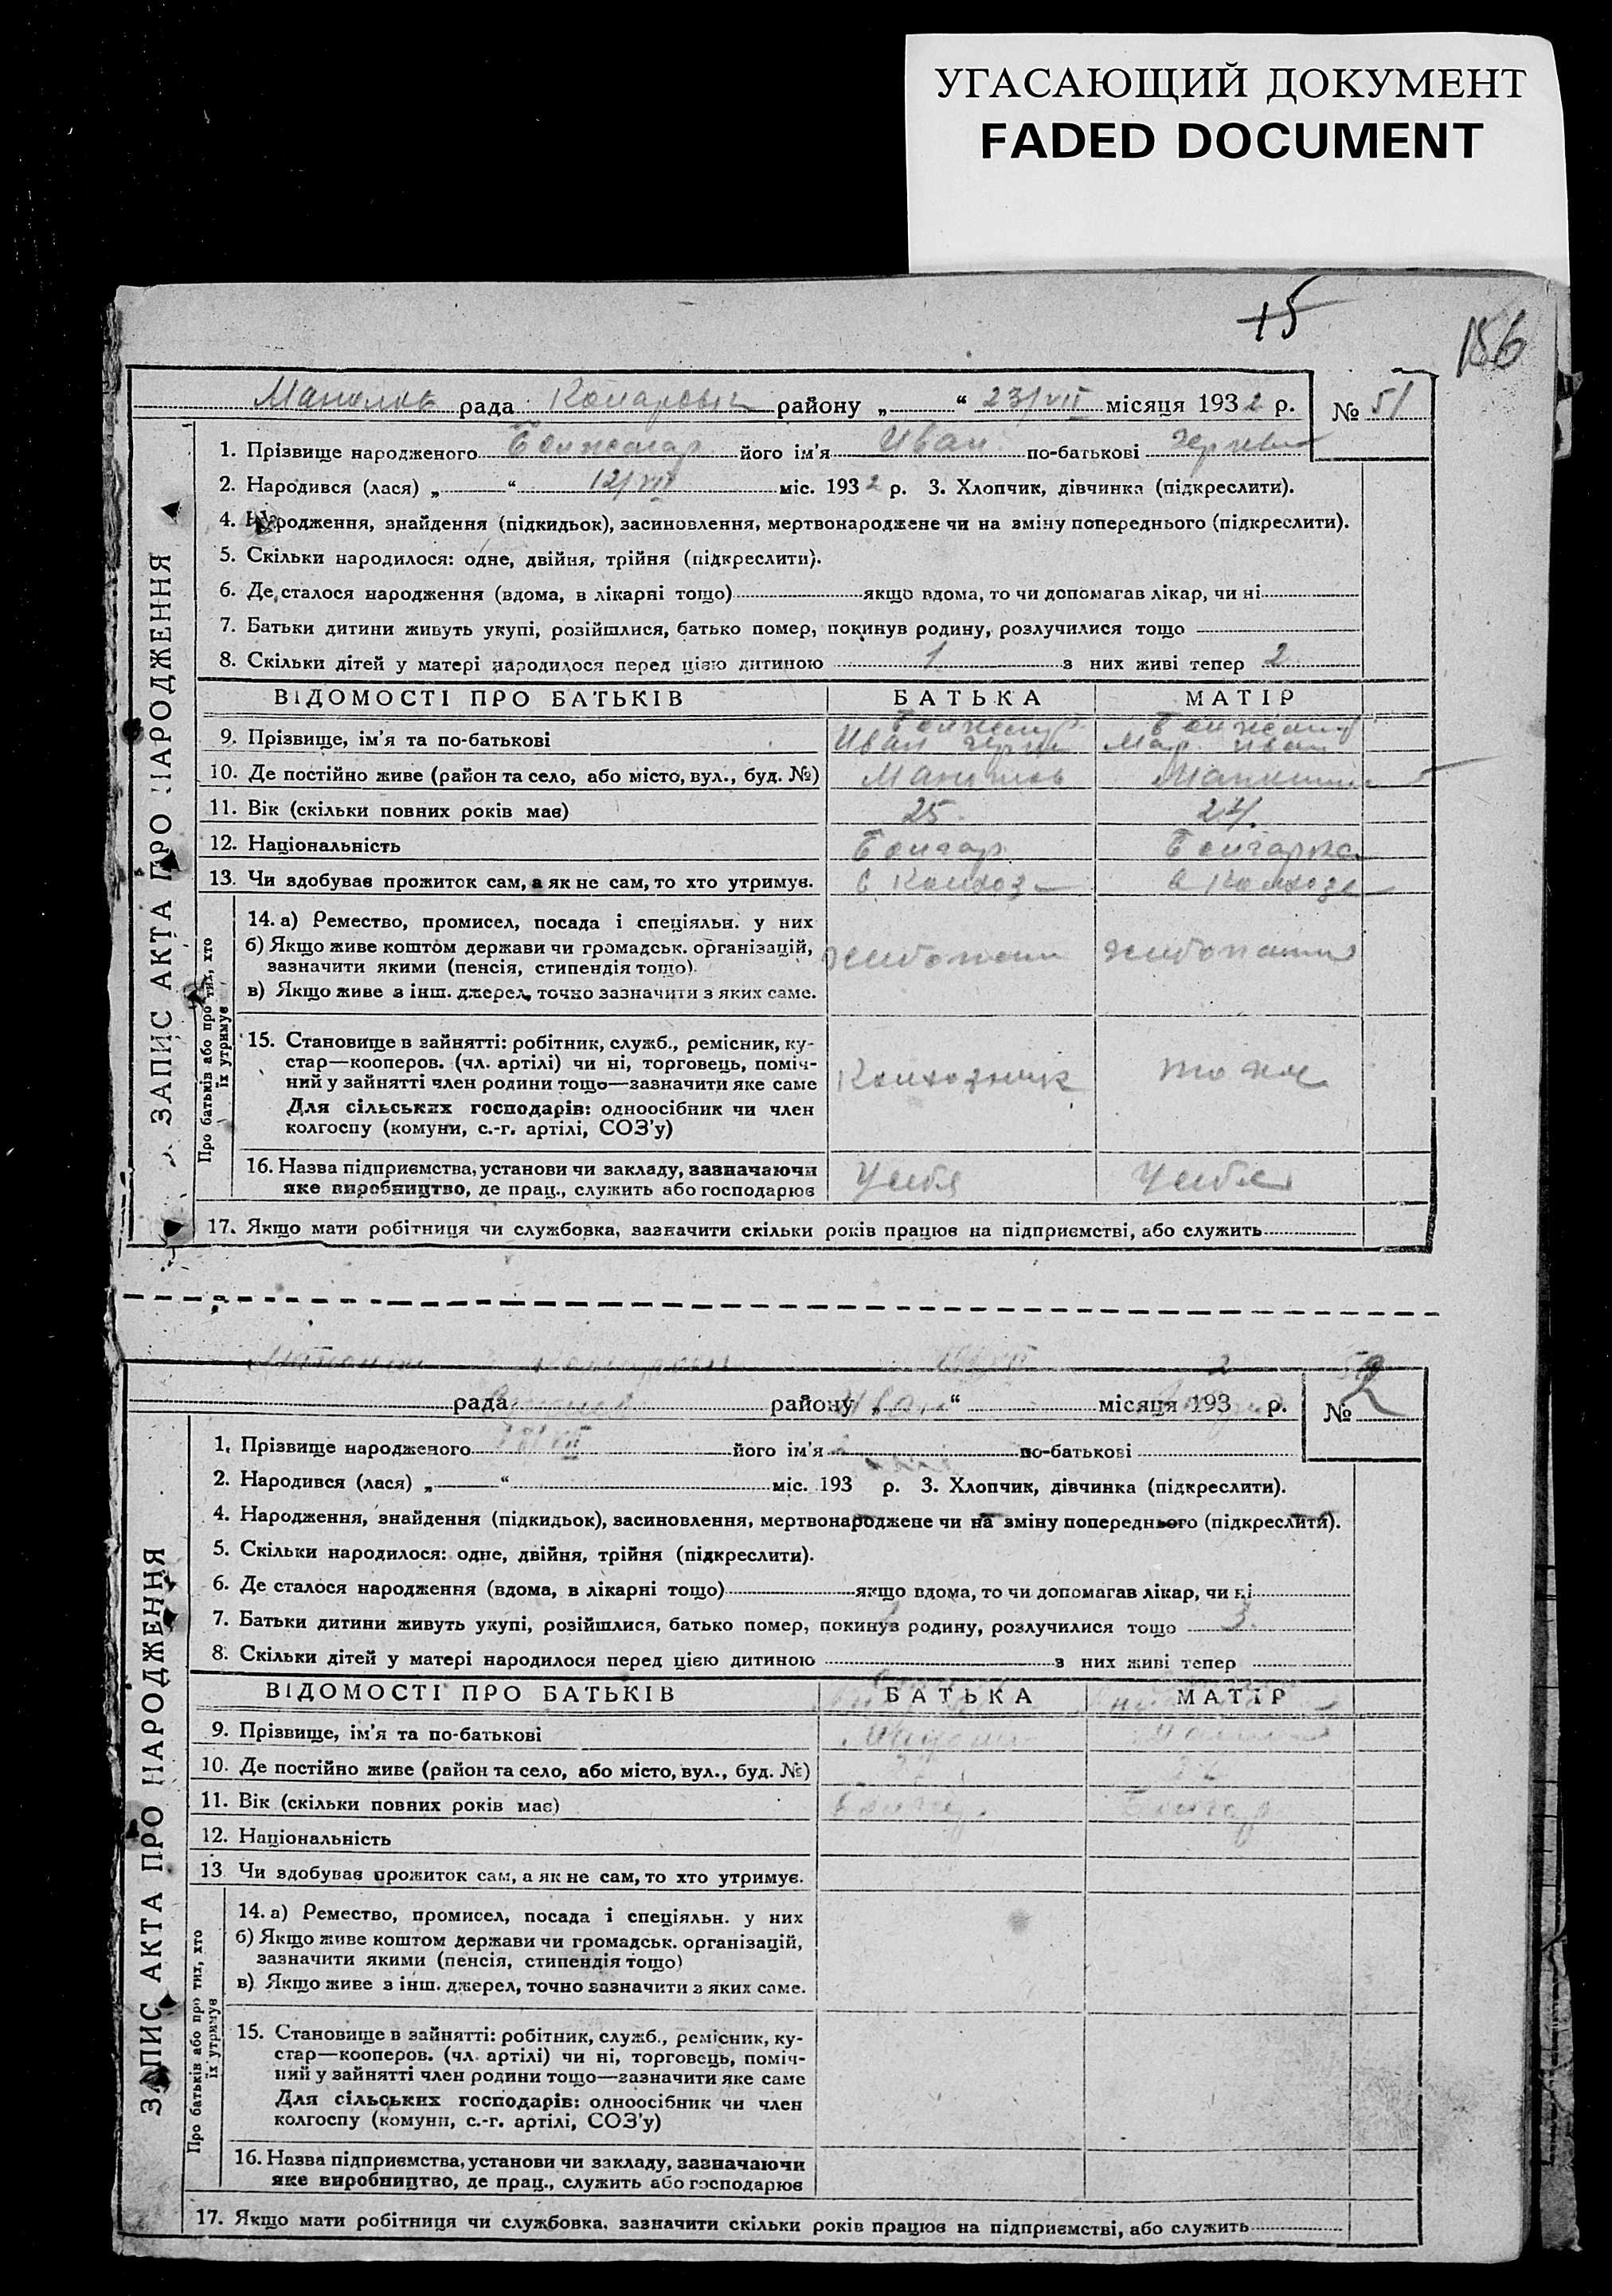 УГАСАЮЩИЙ ДОКУМЕНТ
FADED DOCUMENT
15
156
рада району „ “ 23/VII місяця 1932 р. № 51
1. Прізвище народженого його ім'я Иван по-батькові
2. Народився (лася) „ “ 12/VII міс. 1932 р. 3. Хлопчик, дівчинка (підкреслити).
4. Народження, знайдення (підкидьок), засиновлення, мертвонароджене чи на зміну попереднього (підкреслити).
5. Скільки народилося: одне, двійня, трійня (підкреслити).
6. Де сталося народження (вдома, в лікарні тощо) якщо вдома, то чи допомагав лікар, чи ні
7. Батьки дитини живуть укупі, розійшлися, батько помер, покинув родину, розлучилися тощо
8. Скільки дітей у матері народилося перед цією дитиною 1 з них живі тепер 2
ЗАПИС АКТА ПРО НАРОДЖЕННЯ
ВІДОМОСТІ ПРО БАТЬКІВ БАТЬКА МАТІР
9. Прізвище, ім'я та по-батькові Иван
10. Де постійно живе (район та село, або місто, вул., буд. №)
11. Вік (скільки повних років має) 25 24
12. Національність Болгар Болгарка
13. Чи здобуває прожиток сам, а як не сам, то хто утримує. в Колхоз в Колхозе
Про батьків або про тих, хто
їх утримує
14. а) Ремество, промисел, посада і спеціяльн. у них
б) Якщо живе коштом держави чи громадськ. організацій,
зазначити якими (пенсія, стипендія тощо).
в) Якщо живе з інш. джерел, точно зазначити з яких саме.
15. Становище в зайнятті: робітник, служб., ремісник, ку-
стар—кооперов. (чл. артілі) чи ні, торговець, поміч-
ний у зайнятті член родини тощо—зазначити яке саме
Колхозник то же
Для сільських господарів: одноосібник чи член
колгоспу (комуни, с.-г. артілі, СОЗ'у)
16. Назва підприємства, установи чи закладу, зазначаючи
яке виробництво, де прац., служить або господарює
17. Якщо мати робітниця чи службовка, зазначити скільки років працює на підприємстві, або служить
рада району „ “ місяця 193 р. №
1. Прізвище народженого його ім'я по-батькові
2. Народився (лася) „ “ міс. 193 р. 3. Хлопчик, дівчинка (підкреслити).
4. Народження, знайдення (підкидьок), засиновлення, мертвонароджене чи на зміну попереднього (підкреслити).
5. Скільки народилося: одне, двійня, трійня (підкреслити).
6. Де сталося народження (вдома, в лікарні тощо) якщо вдома, то чи допомагав лікар, чи ні
7. Батьки дитини живуть укупі, розійшлися, батько помер, покинув родину, розлучилися тощо 3
8. Скільки дітей у матері народилося перед цією дитиною з них живі тепер
ЗАПИС АКТА ПРО НАРОДЖЕННЯ
ВІДОМОСТІ ПРО БАТЬКІВ БАТЬКА МАТІР
9. Прізвище, ім'я та по-батькові
10. Де постійно живе (район та село, або місто, вул., буд. №)
11. Вік (скільки повних років має)
12. Національність
13. Чи здобуває прожиток сам, а як не сам, то хто утримує.
Про батьків або про тих, хто
їх утримує
14. а) Ремество, промисел, посада і спеціяльн. у них
б) Якщо живе коштом держави чи громадськ. організацій,
зазначити якими (пенсія, стипендія тощо)
в) Якщо живе з інш. джерел, точно зазначити з яких саме.
15. Становище в зайнятті: робітник, служб., ремісник, ку-
стар—кооперов. (чл. артілі) чи ні, торговець, поміч-
ний у зайнятті член родини тощо—зазначити яке саме
Для сільських господарів: одноосібник чи член
колгоспу (комуни, с.-г. артілі, СОЗ'у)
16. Назва підприємства, установи чи закладу, зазначаючи
яке виробництво, де прац., служить або господарює
17. Якщо мати робітниця чи службовка, зазначити скільки років працює на підприємстві, або служить